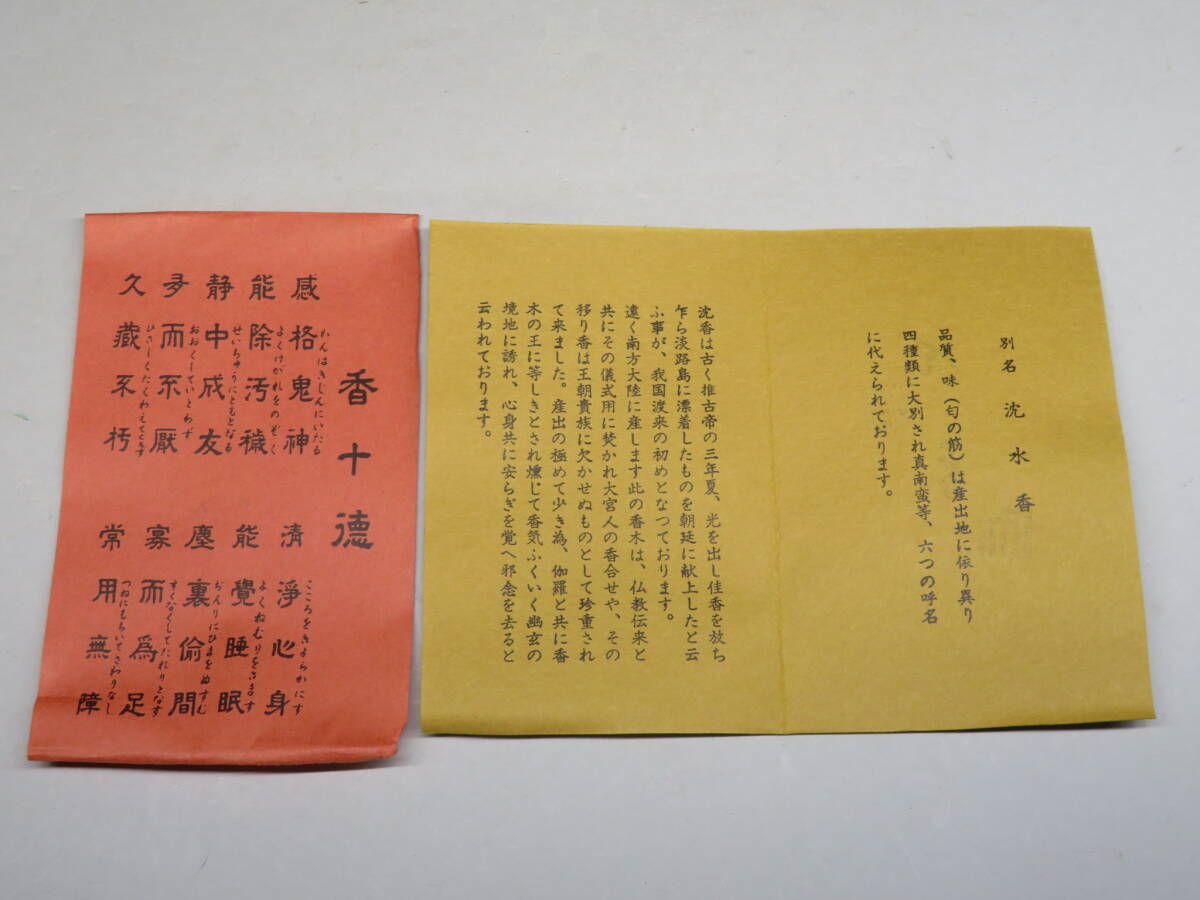 香十德
感格鬼神
かんはきじんにいたる
能除汚穢
よくけがれをのぞく
静中成友
せいちゅうにともとなる
多而不厭
おおくしていとわず
久藏不朽
ひさしくたくわえてくちず
清淨心身
こころをきよらかにす
能覺睡眠
よくねむりをさます
塵裏偷間
ぢんりにひまをぬすむ
寡而為足
すくなくしてたれりとなす
常用無障
つねにもちいてさわりなし
別名 沈水香
品質、味(匂の筋)は産出地に依り異り
四種類に大別され真南蛮等、六つの呼名
に代えられております。
沈香は古く推古帝の三年夏、光を出し佳香を放ち
乍ら淡路島に漂着したものを朝廷に献上したと云
ふ事が、我国渡来の初めとなつております。
遠く南方大陸に産します此の香木は、仏教伝来と
共にその儀式用に焚かれ大宮人の香合せや、その
移り香は王朝貴族に欠かせぬものとして珍重され
て来ました。産出の極めて少き為、伽羅と共に香
木の王に等しきとされ燻じて香気ふくいく幽玄の
境地に誘れ、心身共に安らぎを覚へ邪念を去ると
云われております。